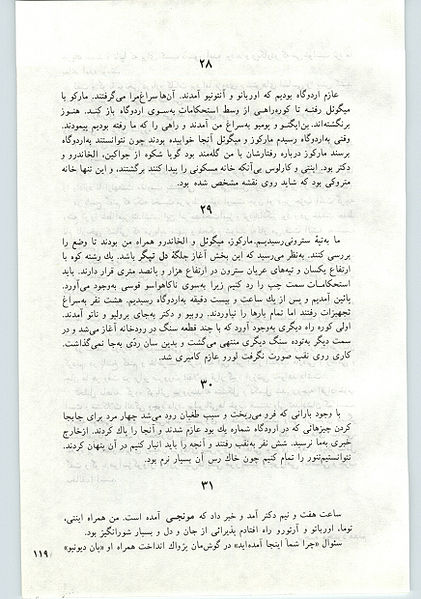 ۲۸
عازم اردوگاه بودیم که اوربانو و آنتونیو آمدند. آن‌ها سراغ مرا می‌گرفتند. مارکو با
میگوئل رفته تا کوره‌راهی از وسط استحکامات به‌سوی اردوگاه باز کنند. هنوز
برنگشته‌اند. بن‌ایگنو و پومبو به‌سراغ من آمدند و راهی را که ما رفته بودیم پیمودند.
وقتی به‌اردوگاه رسیدم مارکوز و میگوئل آنجا خوابیده بودند چون نتوانستند به‌اردوگاه
برسند مارکوز درباره رفتارشان با من گله‌مند بود گویا شکوه از جواکین، الخاندرو و
دکتر بود. اینتی و کارلوس بی‌آنکه خانه مسکونی را پیدا کنند برگشتند، و این تنها خانه
متروکی بود که شاید روی نقشه مشخص شده بود.
۲۹
ما به‌تپهٔ سترونی رسیدیم. مارکوز، میگوئل و الخاندرو همراه من بودند تا وضع را
بررسی کنند. به‌نظر می‌رسید که این بخش آغاز جلگهٔ دل تیگر باشد. یک رشته کوه با
ارتفاع یکسان و تپه‌های عریان سترون در ارتفاع هزار و پانصد متری قرار دارند. باید
استحکامات سمت چپ را رد کنیم زیرا به‌سوی ناکاهواسو قوسی به‌وجود می‌آورد.
پائین آمدیم و پس از یک ساعت و بیست دقیقه به‌اردوگاه رسیدیم. هشت نفر به‌سراغ
تجهیزات رفتند اما تمام بارها را نیاوردند. روبیو و دکتر به‌جای برولیو و ناتو آمدند.
اولی کوره راه دیگری به‌وجود آورد که با چند قطعه سنگ در رودخانه آغاز می‌شد و در
سمت دیگر به‌توده سنگ دیگری منتهی می‌گشت و بدین سان ردّی به‌جا نمی‌گذاشت.
کاری روی نقب صورت نگرفت لورو عازم کامیری شد.
۳۰
با وجود بارانی که فرو می‌ریخت و سبب طغیان رود می‌شد چهار مرد برای جابجا
کردن چیزهائی که در اردوگاه شماره یک بود عازم شدند و آنجا را پاک کردند. از خارج
خبری به‌ما نرسید. شش نفر به‌نقب رفتند و آنچه را باید انبار کنیم در آن پنهان کردند.
نتوانستیم تنور را تمام کنیم چون خاک رس آن بسیار نرم بود.
۳۱
ساعت هفت و نیم دکتر آمد و خبر داد که مونجی آمده است. من همراه اینتی،
توما، اوربانو و آرتورو راه افتادم پذیرائی از جان و دل و بسیار شورانگیز بود.
سئوال «چرا شما اینجا آمده‌اید» در گوش‌مان پژواک انداخت همراه او «پان دیونیو»
۱۱۹